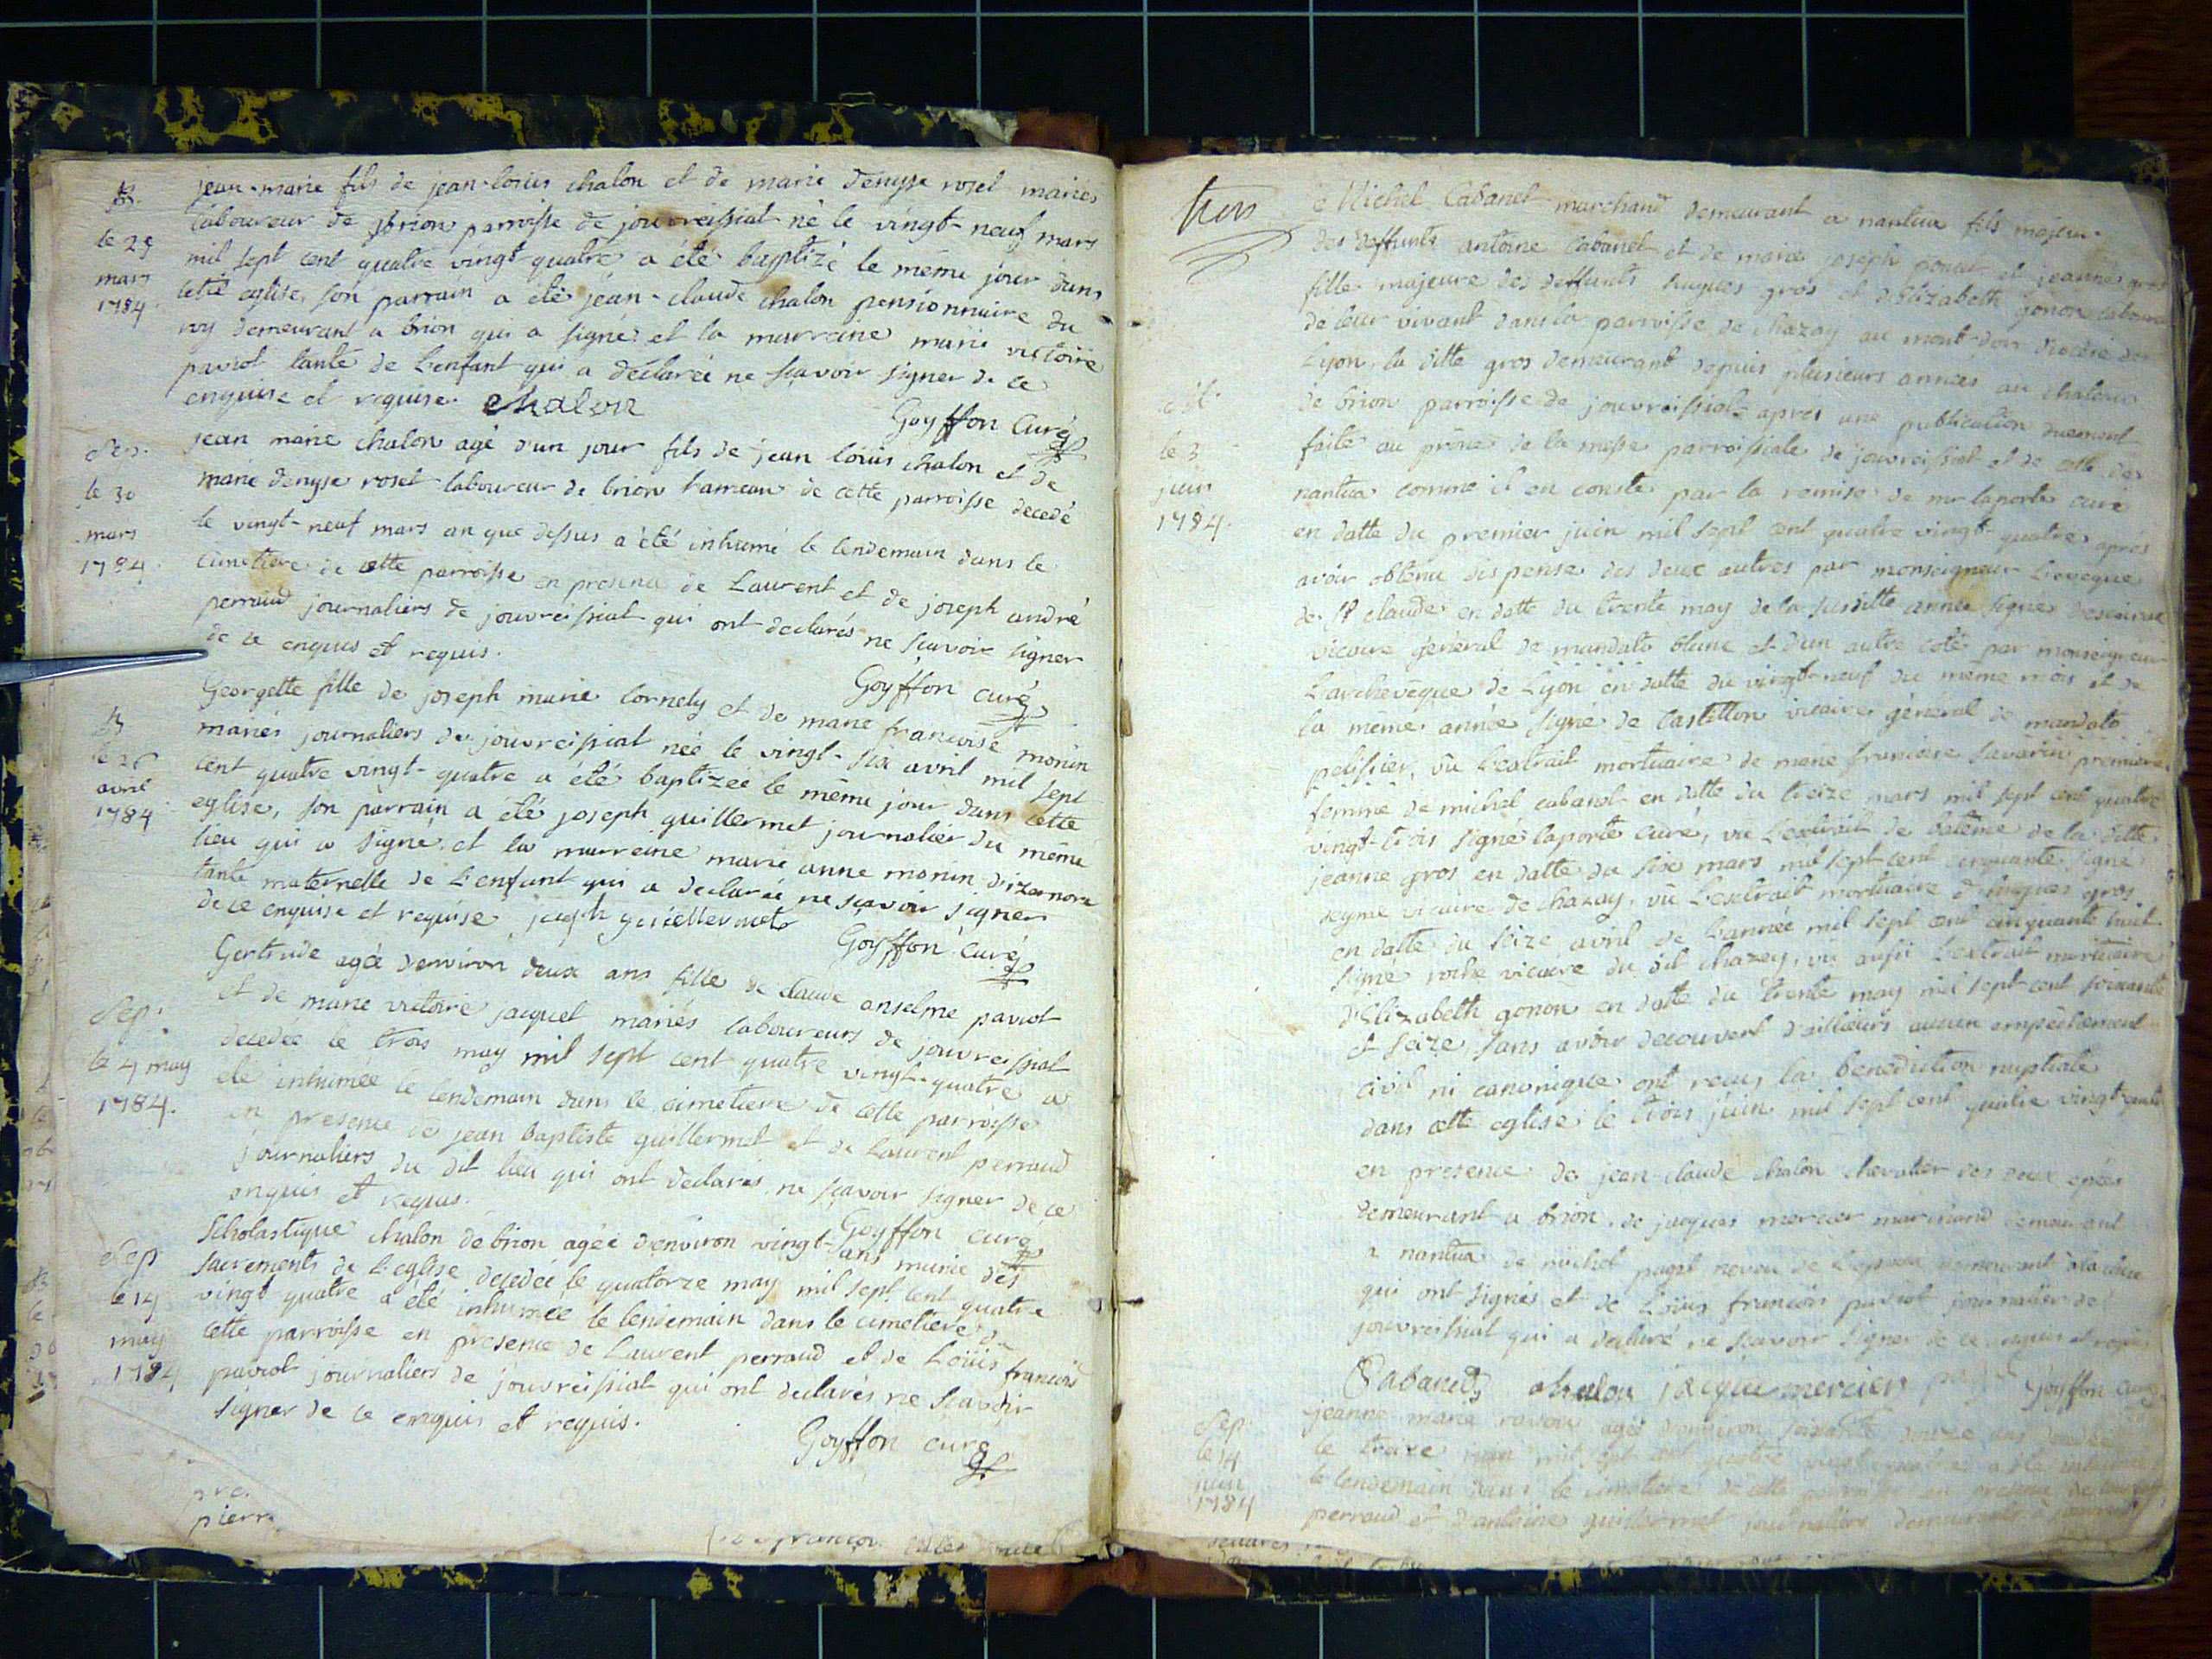 B.
le 29
mars
1784.
jean-marie fils de jean-loüis chalon et de marie denyse rosel mariés
laboureur de brion parroisse de jouvreissiat né le vingt-neuf mars
mil sept cent quatre vingt-quatre a été baptizé le même jour dans
cette eglise, son parrain a été jean-claude chalon pensionnaire du
roy demeurant a brion qui a signé et la marraine marie victoire
paviot tante de L'enfant qui a déclarée ne sçavoir signer de ce
enquise et requise. chalon
Goyffon Curé
Sep.
le 30
mars
1784.
jean marie chalon agé d'un jour fils de jean loüis chalon et de
marie denyse rosel laboureur de brion hameau de cette parroisse decedé
le vingt-neuf mars an que dessus a été inhumé le lendemain dans le
cimetiere de cette parroisse en presence de Laurent et de joseph andré
perraud journaliers de jouvreissiat qui ont declarés ne sçavoir signer
de ce enquis et requis.
Goyffon curé
B
le 26
avril
1784
Georgette fille de joseph marie Cornely et de marie francoise monin
mariés journaliers de jouvreissiat née le vingt-six avril mil sept
cent quatre vingt-quatre a été baptizée le même jour dans cette
eglise, son parrain a été joseph guillermet journalier du même
lieu qui a signé et la marreine marie anne monin d'izernore
tante maternelle de L'enfant qui a declarée ne sçavoir signer
de ce enquise et requise, joseph guillermet
Goyffon Curé
Sep.
le 4 may
1784.
Gertrude agée d'environ deux ans fille de claude anselme paviot
et de marie victoire jacquet mariés laboureurs de jouvreissiat
decedée le trois may mil sept cent quatre vingt-quatre a
été inhumée le lendemain dans le cimetiere de cette parroisse
en presence de jean baptiste guillermet et de Laurent perraud
journaliers du dit lieu qui ont declarés ne sçavoir signer de ce
enquis et requis.
Goyffon curé
Sep
le 14
may
1784
Scholastique chalon de brion agée d'environ vingt-ans munie des
sacrements de L'eglise decedée le quatorze may mil sept cent quatre
vingt quatre a été inhumée le lendemain dans le cimetiere de
cette parroisse en presence de Laurent perraud et de Loüis francois
paviot journaliers de jouvreissiat qui ont declarés ne sçavoir
signer de ce enquis et requis.
Goyffon curé
pierr
trois
le 3
juin
1784.
Michel Cabanet marchand demeurant a nantua fils majeur
des deffunts antoine Cabanet et de marie joseph poncet et jeanne gros
fille majeure des deffunts hugues gros et d'Elizabeth gonon laboureurs
de leur vivant dans la parroisse de chazay au mont-dor diocèse de
Lyon, la ditte gros demeurant depuis plusieurs années au chateau
de brion parroisse de jouvreissiat apres une publication duement
faite au prône de la messe parroissiale de jouvreissiat et de celle de
nantua comme il en conste par la remise de mr laporte curé
en datte du premier juin mil sept cent quatre vingt-quatre après
avoir obtenu dispense des deux autres par monseigneur L'eveque
de St claude en datte du trente may de la susditte année signé
vicaire général de mandato blanc et d'un autre coté par monseigneur
L'archevêque de Lyon en datte du vingt-neuf du même mois et de
la meme année signé de Castillon vicaire général de mandato
pelissier, vû L'extrait mortuaire de marie francoise savarin premiere
femme de michel cabanet en datte du treize mars mil sept cent quatre
vingt-trois signé laporte curé, vu L'extrait de batême de la ditte
jeanne gros en datte du six mars mil sept-cent cinquante signé
vicaire de chazay, vû L'extrait mortuaire d'hugues gros
en datte du seize avril de L'année mil sept cent cinquante huit
signé roche vicaire du dit chazay, vu aussi L'extrait mortuaire
d'Elizabeth gonon en datte du trente may mil sept-cent soixante
et seize, sans avoir decouvert d'ailleurs aucun empêchement
civil ni canonique ont recus la benediction nuptiale
dans cette eglise le trois juin mil sept cent quatre vingt-quatre
en presence de jean-claude chalon chevalier des deux epées
demeurant a brion, de jacques mercier marchand demeurant
a nantua de michel paget neveu de L'epoux demeurant
qui ont signés et de Loüis francois paviot journalier de
jouvreissiat qui a declaré ne sçavoir signer de ce enquis et requis
Cabanet chalon jacque mercier paget Goyffon curé
Sep.
le 14
juin
1784
jeanne marie agée d'environ soixante ans decedée
le treize juin mil sept cent quatre vingt quatre a été inhumée
le lendemain dans le cimetiere de cette parroisse en presence de Laurent
perraud et d'antoine guillermet journaliers demeurants a